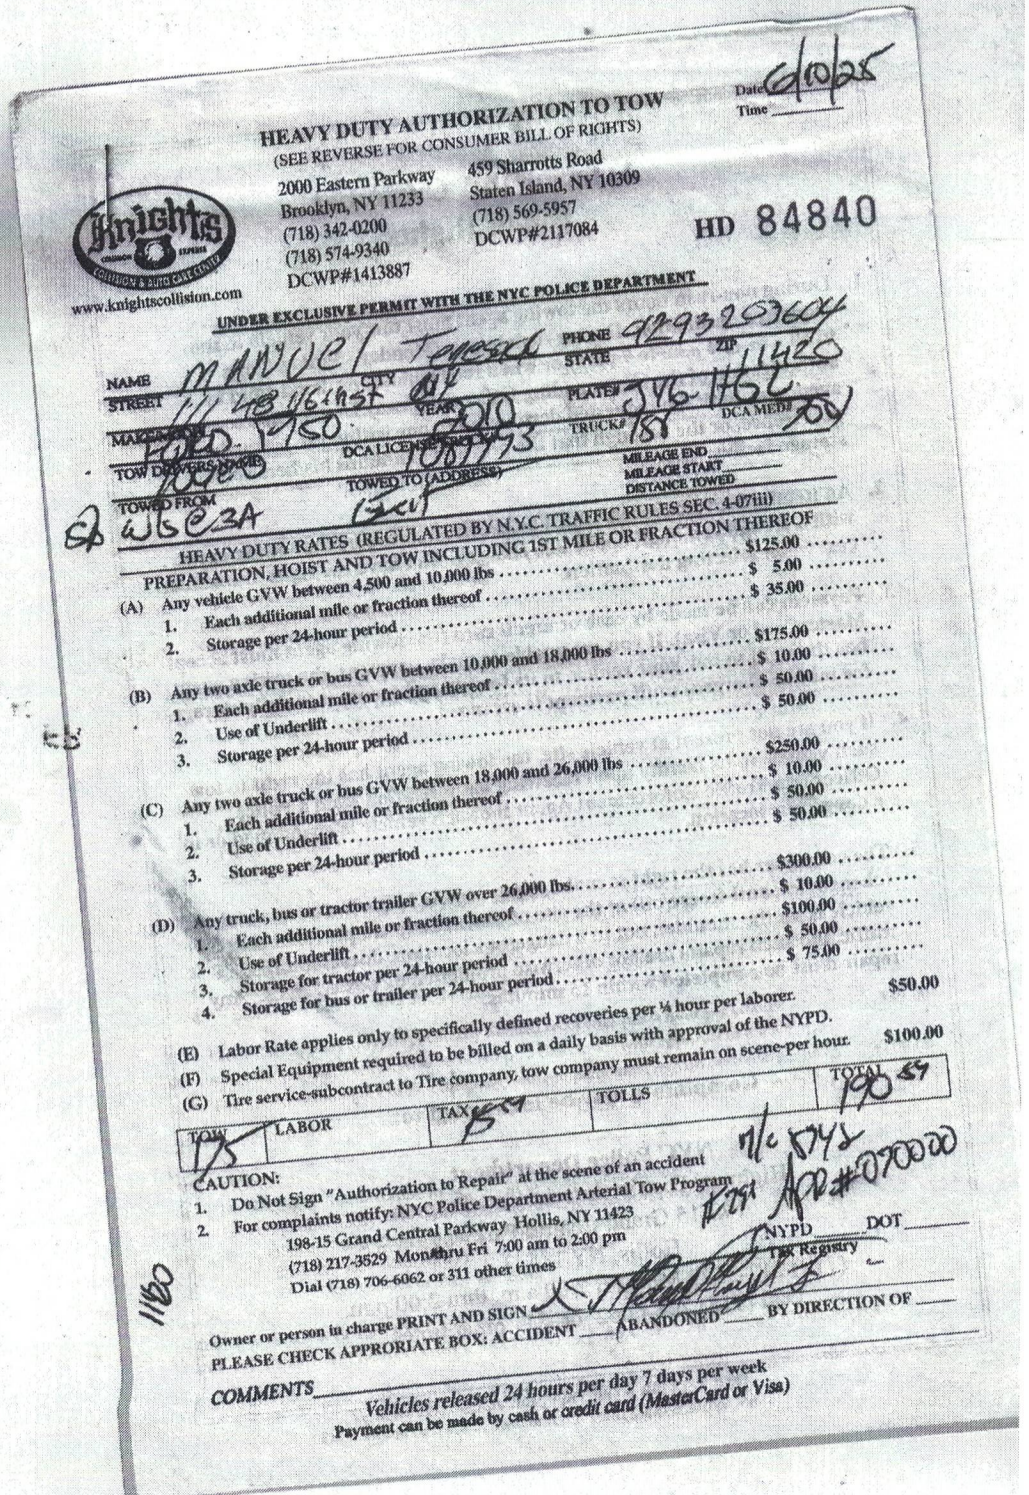 Date 6/10/25
Time
HEAVY DUTY AUTHORIZATION TO TOW
(SEE REVERSE FOR CONSUMER BILL OF RIGHTS)
Knights
COLLISION EXPERTS
COLLISION & AUTO CARE CENTER
www.knightscollision.com
2000 Eastern Parkway
Brooklyn, NY 11233
(718) 342-0200
(718) 574-9340
DCWP#1413887
459 Sharrotts Road
Staten Island, NY 10309
(718) 569-5957
DCWP#2117084
HD 84840
UNDER EXCLUSIVE PERMIT WITH THE NYC POLICE DEPARTMENT
NAME MANUel PHONE 9293203604
STREET 111 48 116th st CITY NY STATE ZIP 11420
MAKE/MODEL FORD F750 YEAR 2010 PLATE#
TOW DRIVERS NAME DCA LICENSE TRUCK# 188 DCA MED#
TOWED FROM TOWED TO (ADDRESS) Exit
MILEAGE END
MILEAGE START
DISTANCE TOWED
HEAVY DUTY RATES (REGULATED BY N.Y.C. TRAFFIC RULES SEC. 4-07iii)
PREPARATION, HOIST AND TOW INCLUDING 1ST MILE OR FRACTION THEREOF
(A) Any vehicle GVW between 4,500 and 10,000 lbs $125.00
1. Each additional mile or fraction thereof $ 5.00
2. Storage per 24-hour period $ 35.00
(B) Any two axle truck or bus GVW between 10,000 and 18,000 lbs $175.00
1. Each additional mile or fraction thereof $ 10.00
2. Use of Underlift $ 50.00
3. Storage per 24-hour period $ 50.00
(C) Any two axle truck or bus GVW between 18,000 and 26,000 lbs $250.00
1. Each additional mile or fraction thereof $ 10.00
2. Use of Underlift $ 50.00
3. Storage per 24-hour period $ 50.00
(D) Any truck, bus or tractor trailer GVW over 26,000 lbs. $300.00
1. Each additional mile or fraction thereof $ 10.00
2. Use of Underlift $100.00
3. Storage for tractor per 24-hour period $ 50.00
4. Storage for bus or trailer per 24-hour period $ 75.00
(E) Labor Rate applies only to specifically defined recoveries per ¼ hour per laborer. $50.00
(F) Special Equipment required to be billed on a daily basis with approval of the NYPD.
(G) Tire service-subcontract to Tire company, tow company must remain on scene-per hour. $100.00
TOW 175 LABOR TAX 15 59 TOLLS TOTAL 190 59
m/c 5742
APP# 070000
CAUTION:
1. Do Not Sign "Authorization to Repair" at the scene of an accident
2. For complaints notify: NYC Police Department Arterial Tow Program
198-15 Grand Central Parkway Hollis, NY 11423
(718) 217-3529 Mon thru Fri 7:00 am to 2:00 pm
Dial (718) 706-6062 or 311 other times
NYPD DOT
Tax Registry
1180
Owner or person in charge PRINT AND SIGN X
PLEASE CHECK APPRORIATE BOX: ACCIDENT ABANDONED BY DIRECTION OF
COMMENTS
Vehicles released 24 hours per day 7 days per week
Payment can be made by cash or credit card (MasterCard or Visa)